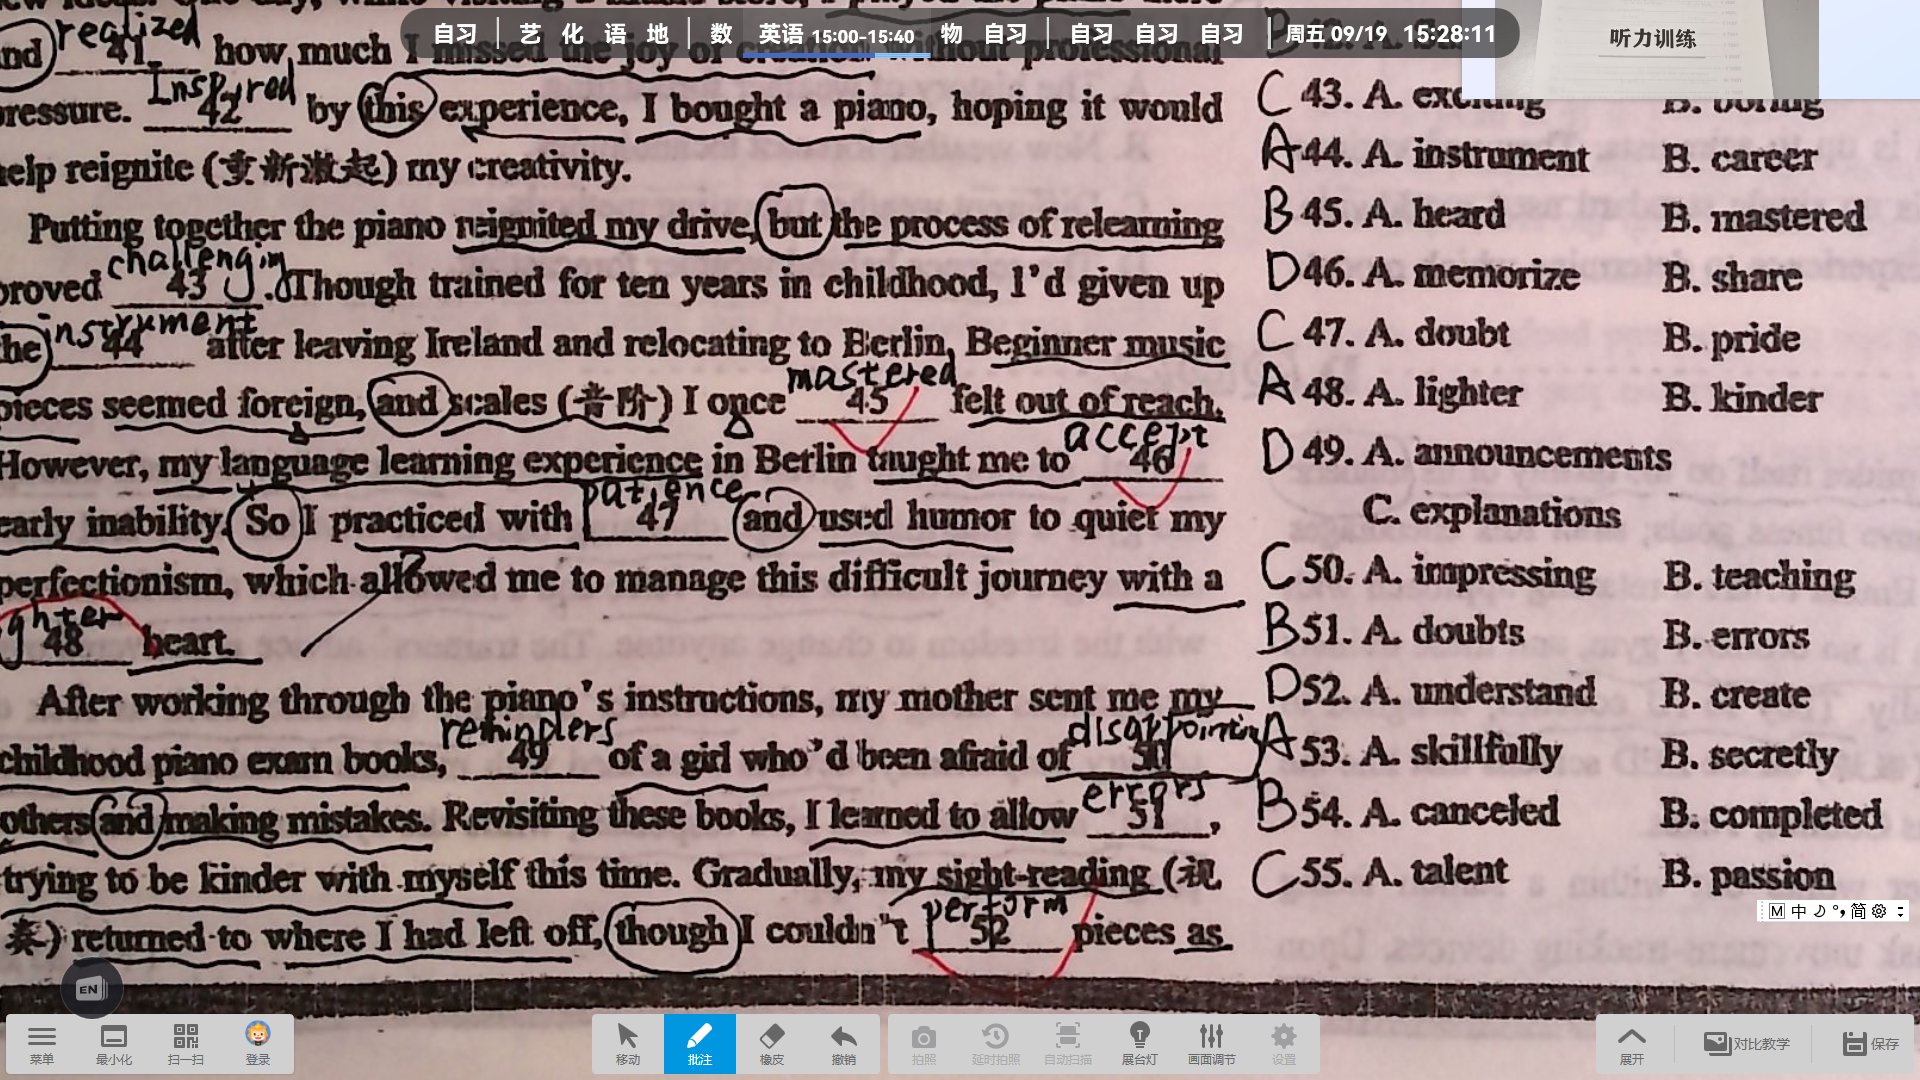 自习 | 艺 化 语 地 | 数 英语 15:00-15:40 物 自习 | 自习 自习 自习 | 周五 09/19 15:28:11
听力训练
realized
41 how much I missed the joy of creation without professional
Inspired
pressure. 42 by this experience, I bought a piano, hoping it would
help reignite (重新激起) my creativity.
Putting together the piano reignited my drive, but the process of relearning
challenging
proved 43. Though trained for ten years in childhood, I'd given up
instrument
the 44 after leaving Ireland and relocating to Berlin. Beginner music
mastered
pieces seemed foreign, and scales (音阶) I once 45 felt out of reach.
accept
However, my language learning experience in Berlin taught me to 46
patience
early inability. So I practiced with 47 and used humor to quiet my
perfectionism, which allowed me to manage this difficult journey with a
ghter
48 heart.
After working through the piano's instructions, my mother sent me my
reminders disappointing
childhood piano exam books, 49 of a girl who'd been afraid of 50
errors
others and making mistakes. Revisiting these books, I learned to allow 51,
trying to be kinder with myself this time. Gradually, my sight-reading (视
perform
奏) returned to where I had left off, though I couldn't 52 pieces as
C 43. A. exciting B. boring
A 44. A. instrument B. career
B 45. A. heard B. mastered
D 46. A. memorize B. share
C 47. A. doubt B. pride
A 48. A. lighter B. kinder
D 49. A. announcements
C. explanations
C 50. A. impressing B. teaching
B 51. A. doubts B. errors
D 52. A. understand B. create
A 53. A. skillfully B. secretly
B 54. A. canceled B. completed
C 55. A. talent B. passion
M 中 简
EN
菜单 最小化 扫一扫 登录 移动 批注 橡皮 撤销 拍照 延时拍照 自动扫描 展台灯 画面调节 设置 展开 对比教学 保存